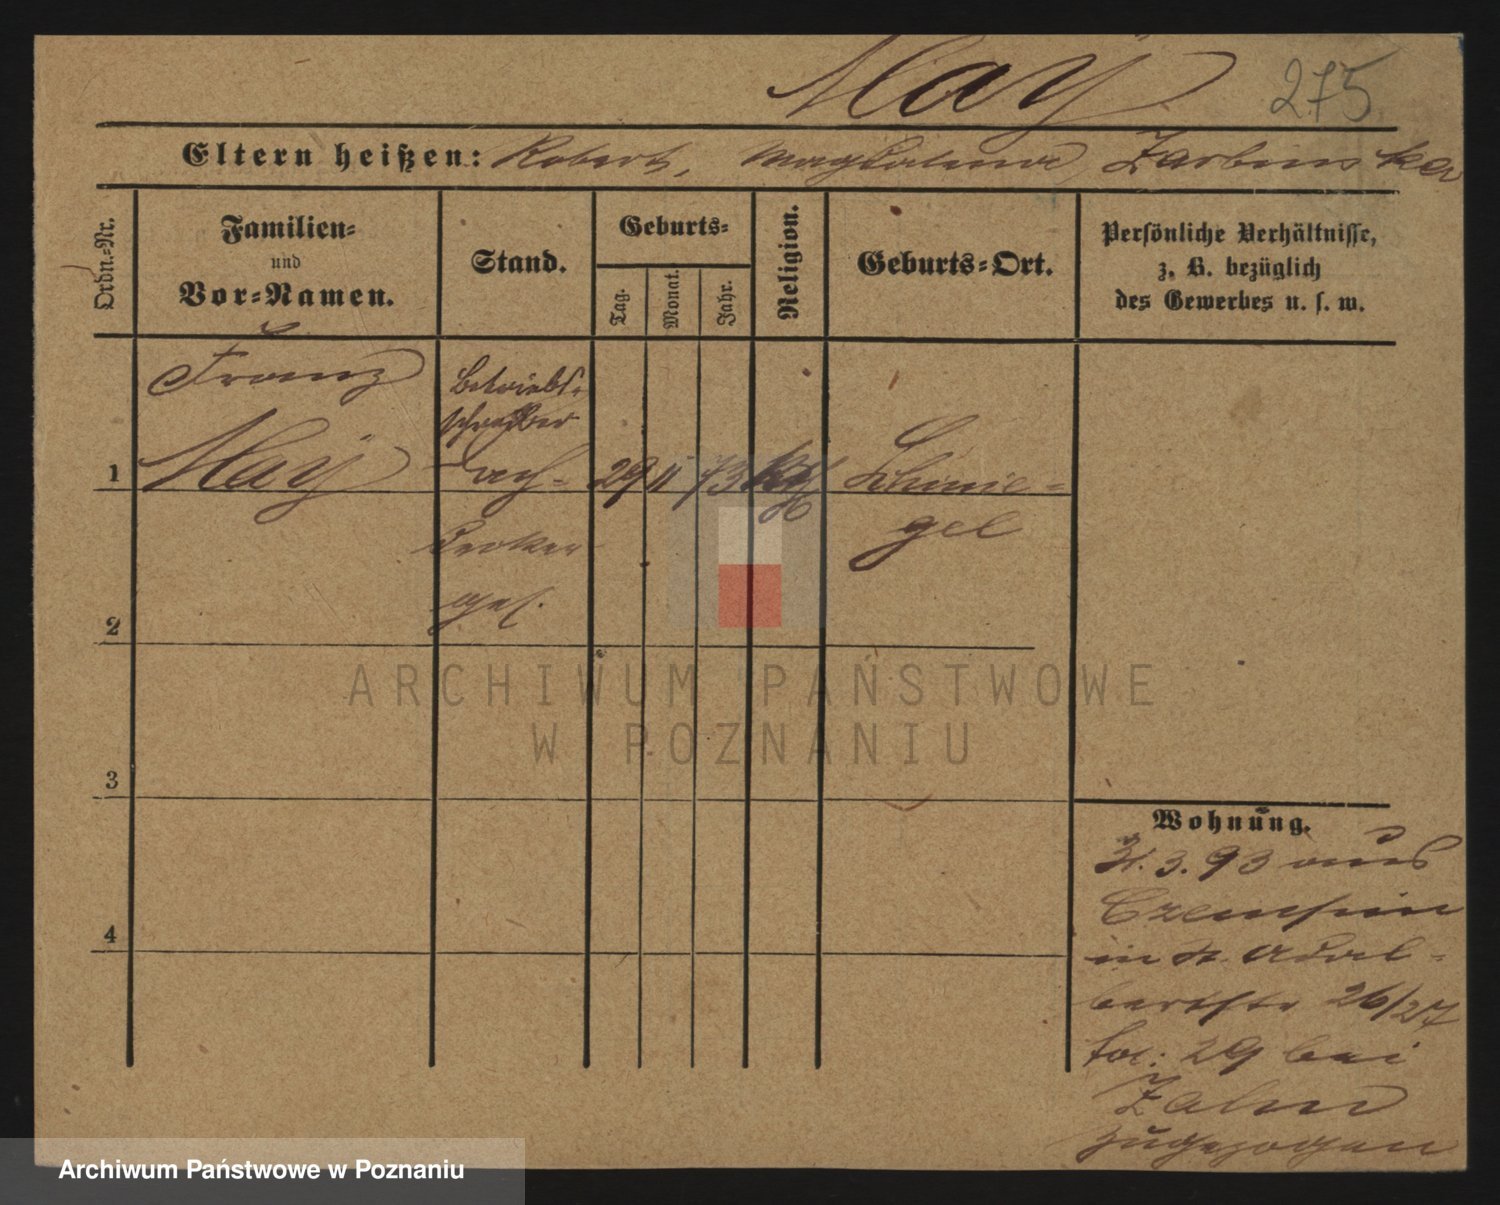 May 275
Eltern heißen: Robert, Magdalena Zarbinska
Ordn.-Nr.
Familien-
und
Vor-Namen.
Stand.
Geburts-
Tag.
Monat.
Jahr.
Religion.
Geburts-Ort.
Persönliche Verhältnisse,
z. B. bezüglich
des Gewerbes u. s. w.
Franz
May
Betriebs-
schreiber
Dach-
decker
ges.
1
29 11 73 kth
Schmie-
gel
2
3
4
Wohnung.
3.93 aus
Czempin
in St. Adal-
bertstr 26/27
fol: 29 bei
zugezogen
ARCHIWUM PAŃSTWOWE
W POZNANIU
Archiwum Państwowe w Poznaniu